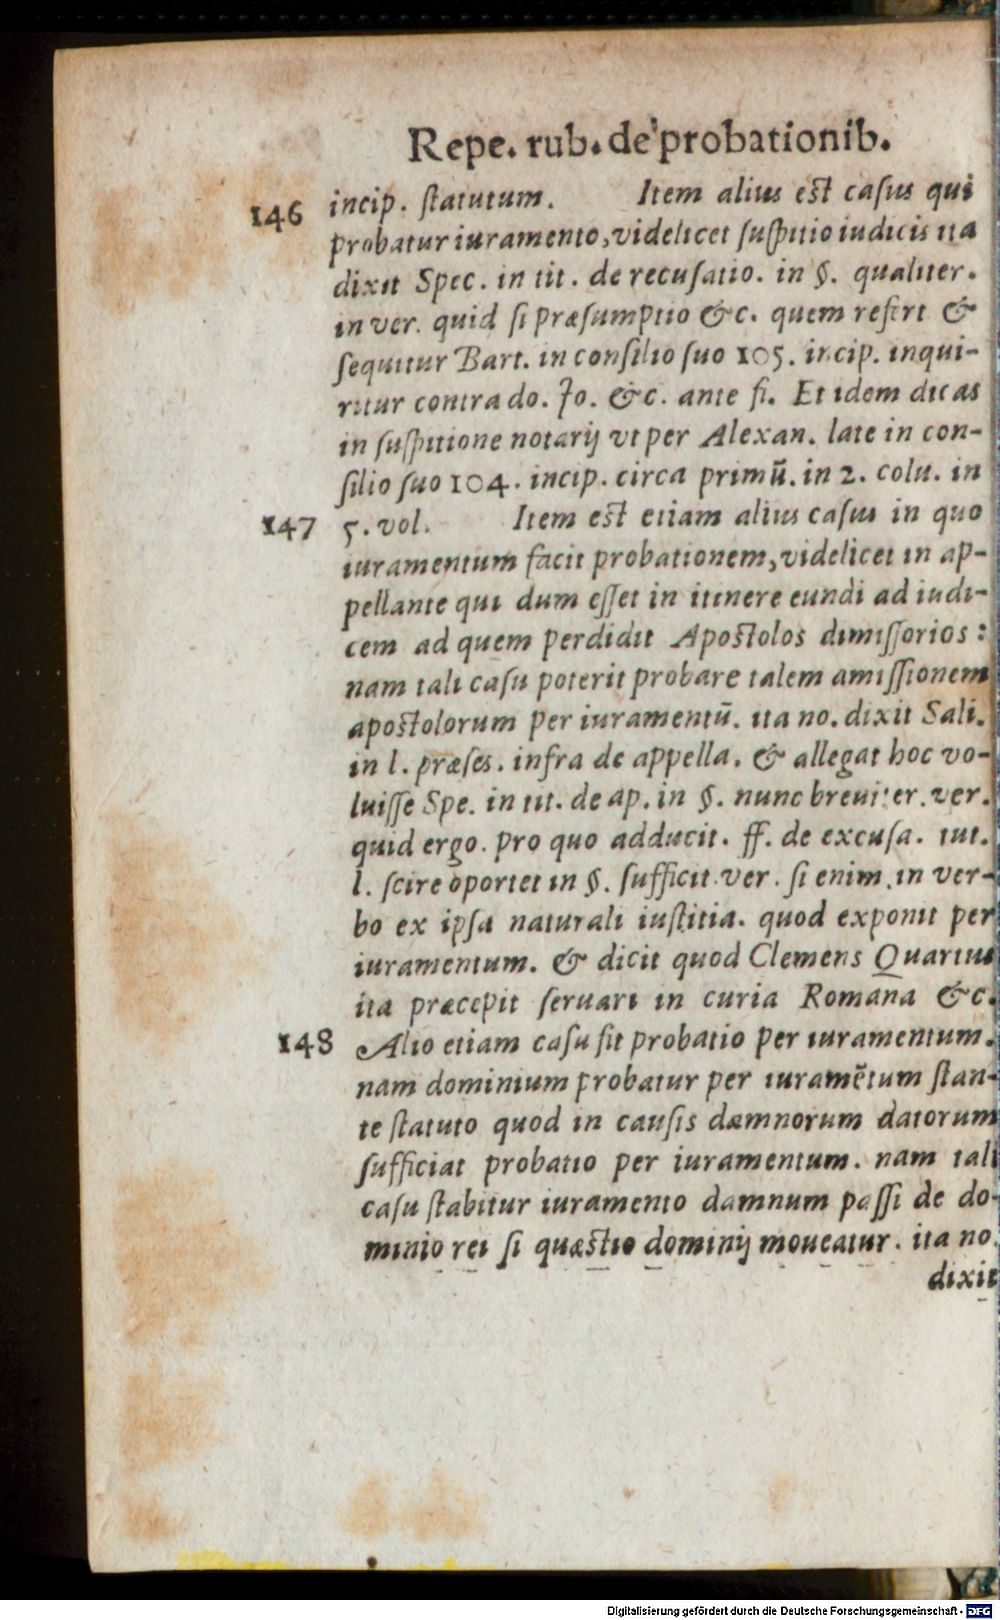 Repe. rub. de probationib.
146 incip. ſtatutum. Item alius eſt caſus qui
probatur iuramento, videlicet ſuſpitio iudicis ita
dixit Spec. in tit. de recuſatio. in §. qualiter.
in ver. quid ſi præſumptio &c. quem refert &
ſequitur Bart. in conſilio ſuo 105. incip. inqui-
ritur contra do. Jo. &c. ante fi. Et idem dicas
in ſuſpitione notarij vt per Alexan. late in con-
ſilio ſuo 104. incip. circa primū. in 2. colu. in
147 5. vol. Item eſt etiam alius caſus in quo
iuramentum facit probationem, videlicet in ap-
pellante qui dum eſſet in itinere eundi ad iudi-
cem ad quem perdidit Apoſtolos dimiſſorios:
nam tali caſu poterit probare talem amiſſionem
apoſtolorum per iuramentū. ita no. dixit Sali.
in l. præſes. infra de appella. & allegat hoc vo-
luiſſe Spe. in tit. de ap. in §. nunc breuiter. ver.
quid ergo. pro quo adducit. ff. de excuſa. tut.
l. ſcire oportet in §. ſufficit. ver. ſi enim. in ver-
bo ex ipſa naturali iuſtitia. quod exponit per
iuramentum. & dicit quod Clemens Quartus
ita præcepit ſeruari in curia Romana &c.
148 Alio etiam caſu fit probatio per iuramentum.
nam dominium probatur per iuramētum ſtan-
te ſtatuto quod in cauſis damnorum datorum
ſufficiat probatio per iuramentum. nam tali
caſu ſtabitur iuramento damnum paſſi de do-
minio rei ſi quæſtio dominij moueatur. ita no.
dixit
Digitalisierung gefördert durch die Deutsche Forschungsgemeinschaft - DFG